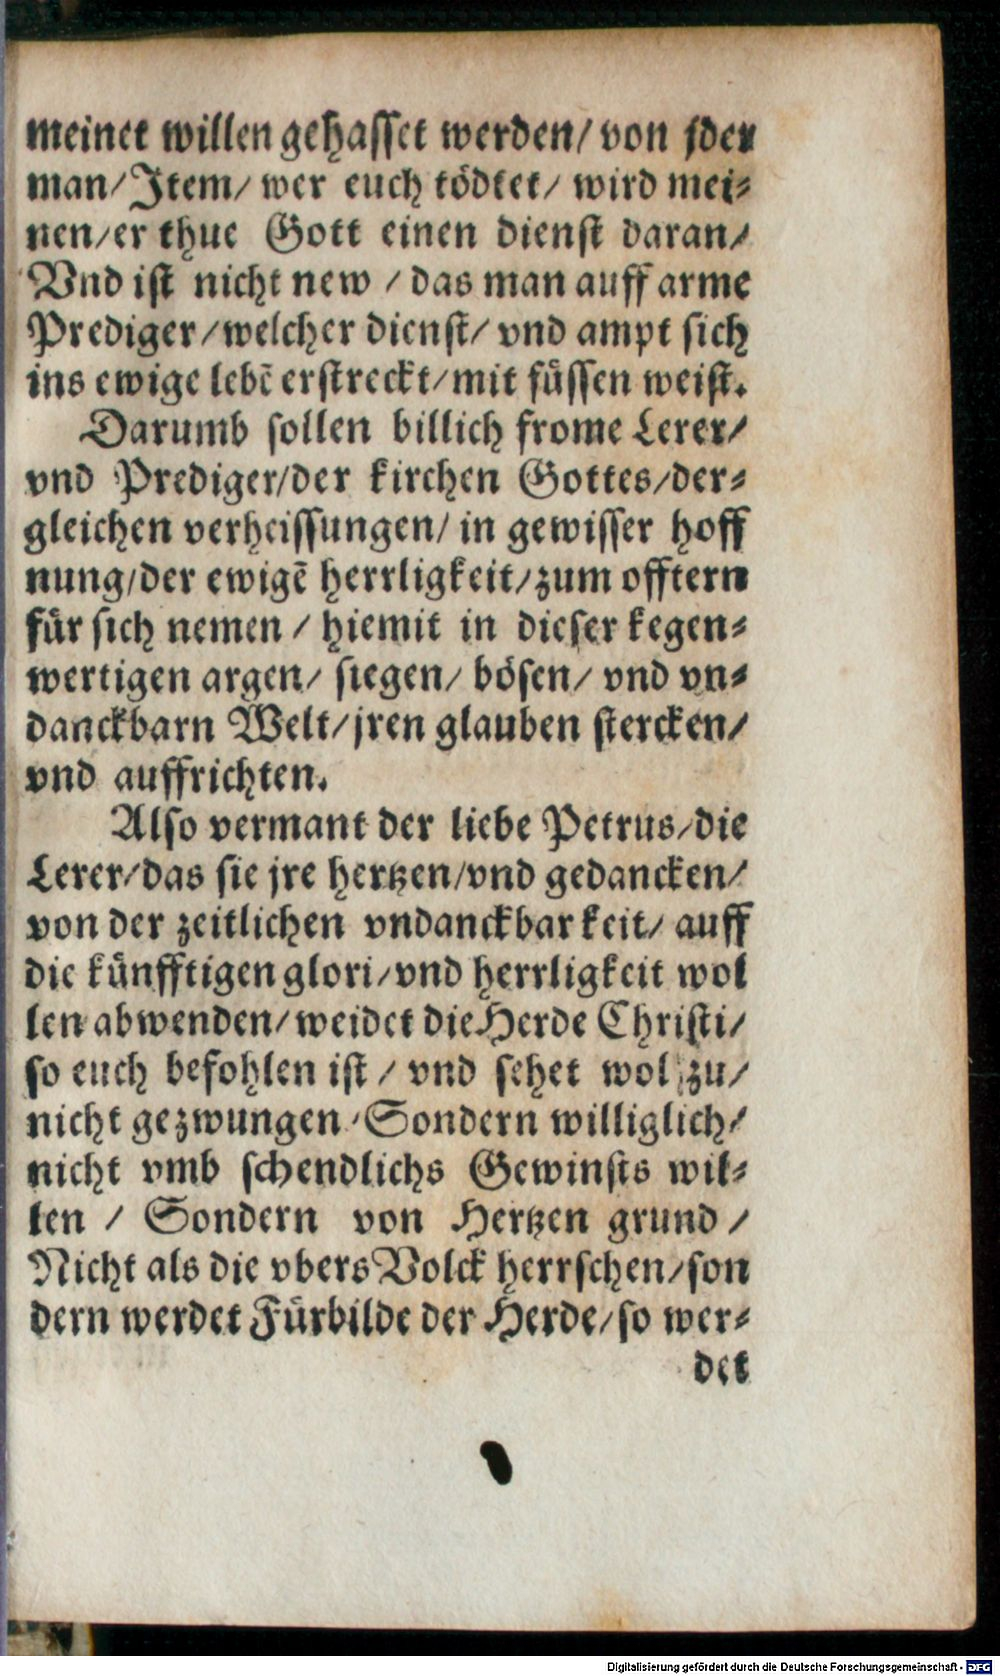 meinet willen gehasset werden/ von jder
man/ Jtem/ wer euch tödtet/ wird mei⸗
nen/ er thue Gott einen dienst daran/
Vnd ist nicht new / das man auff arme
Prediger/ welcher dienst/ vnd ampt sich
ins ewige lebē erstreckt/ mit füssen weist.
Darumb sollen billich frome Lerer/
vnd Prediger/ der kirchen Gottes/ der⸗
gleichen verheissungen/ in gewisser hoff
nung/ der ewigē herrligkeit/ zum offtern
für sich nemen / hiemit in dieser kegen⸗
wertigen argen/ siegen/ bösen/ vnd vn⸗
danckbarn Welt/ jren glauben stercken/
vnd auffrichten.
Also vermant der liebe Petrus/ die
Lerer/ das sie jre hertzen/ vnd gedancken/
von der zeitlichen vndanckbarkeit/ auff
die künfftigen glori/ vnd herrligkeit wol
len abwenden/ weidet die Herde Christi/
so euch befohlen ist / vnd sehet wol zu/
nicht gezwungen/ Sondern williglich/
nicht vmb schendlichs Gewinsts wil⸗
len / Sondern von Hertzen grund /
Nicht als die vbers Volck herrschen/ son
dern werdet Fürbilde der Herde/ so wer⸗
det
Digitalisierung gefördert durch die Deutsche Forschungsgemeinschaft - DFG